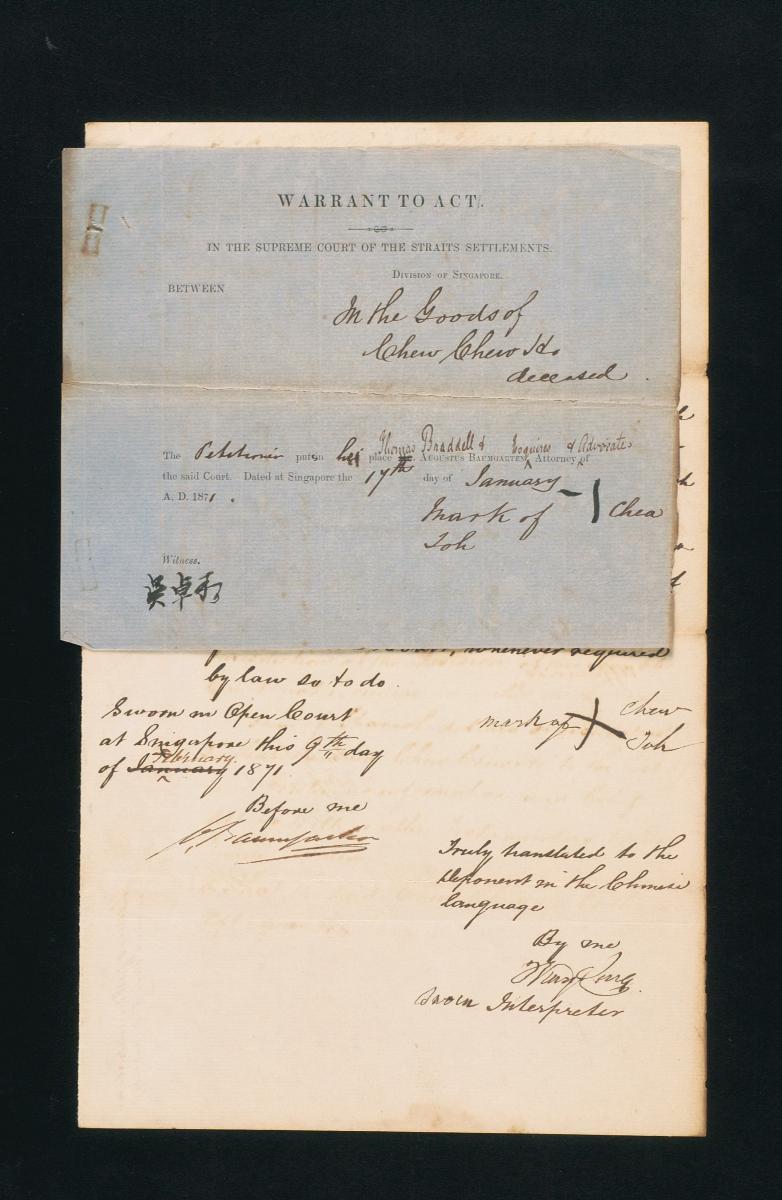 WARRANT TO ACT.
IN THE SUPREME COURT OF THE STRAITS SETTLEMENTS.
DIVISION OF SINGAPORE.
BETWEEN
In the Goods of
Chew Chew
deceased.
Thomas Braddell & Esquires & Advocates
The Petitioner puts in her place AUGUSTUS BAUMGARTEN, Attorney of
the said Court. Dated at Singapore the 17th day of January
A. D. 1871.
Mark of Chea
Toh
Witness.
吳卓
whenever required
by law so to do.
Sworn in Open Court
mark of Chew
Toh
at Singapore this 9th day
February
of January 1871
Before me
Truly translated to the
deponent in the Chinese
language
By me
Sworn Interpreter